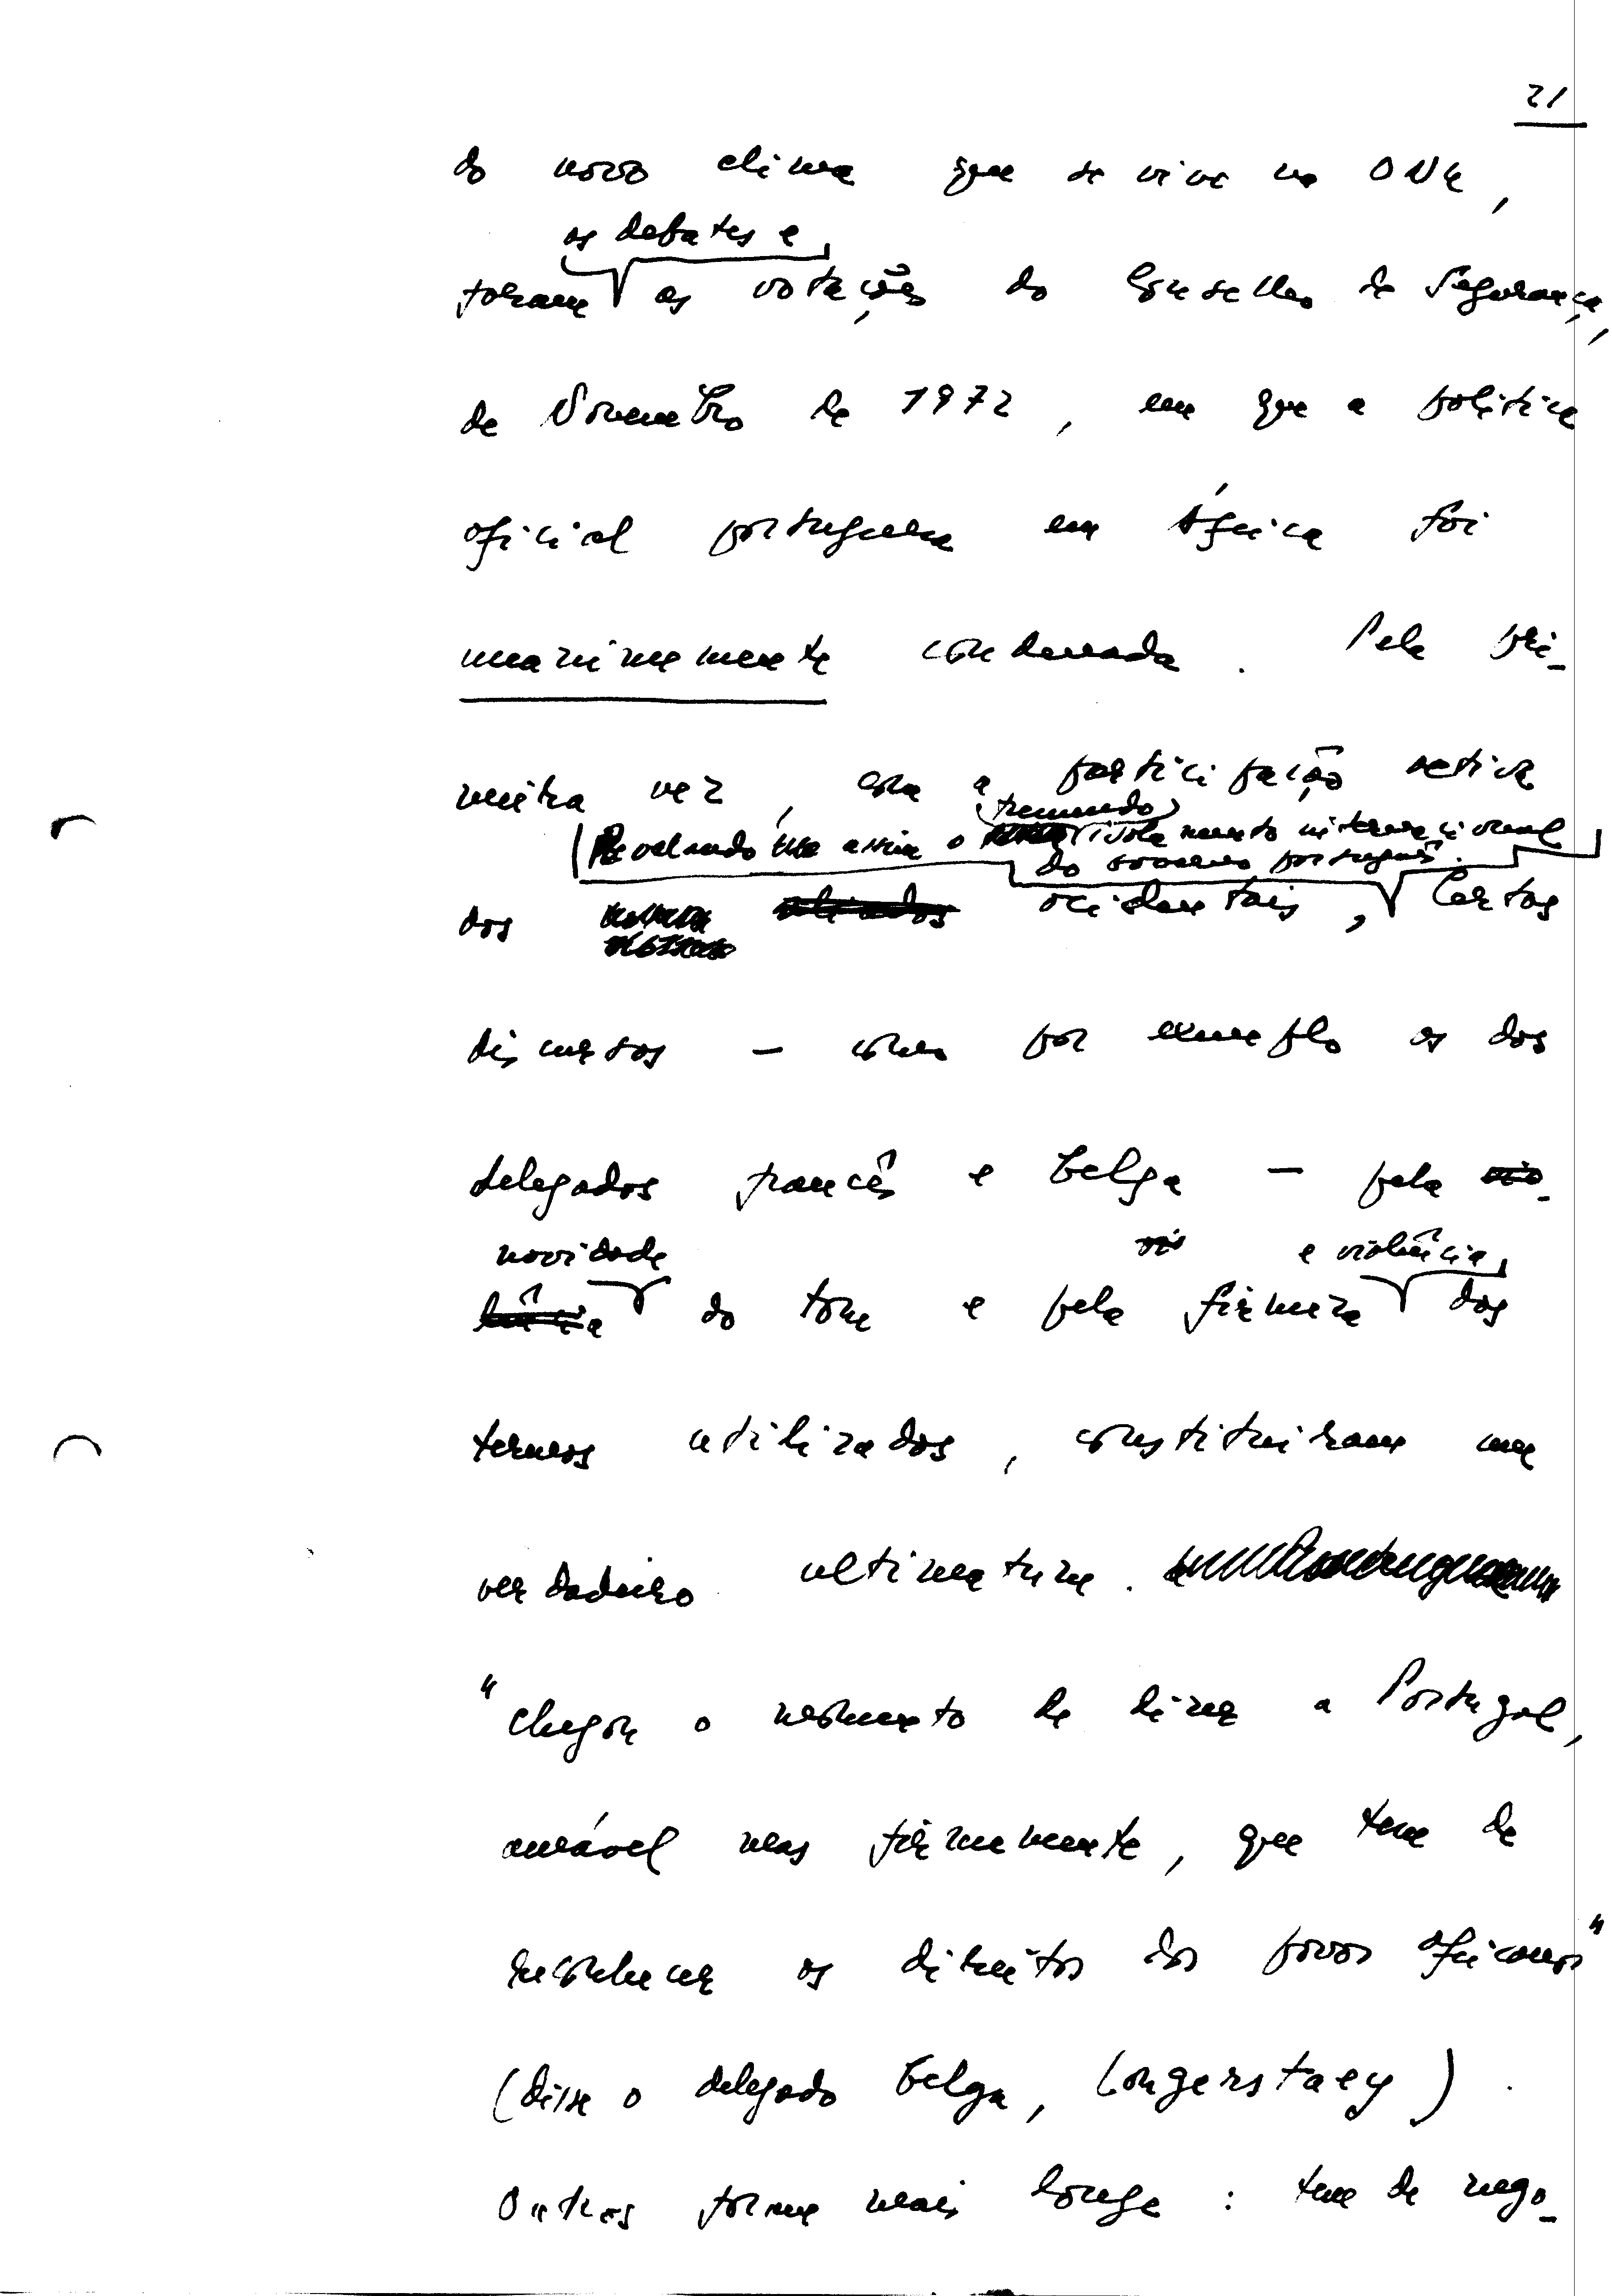 21
do novo clima que se vive na ONU,
os debates e
foram as votações do Conselho de Segurança,
de Novembro de 1972, em que a política
oficial portuguesa em África foi
unanimemente condenada. Pela pri-
meira vez, com a participação activa
(tremendo)
(Revelando-se assim o isolamento internacional
do governo português.
dos ocidentais, Certos
discursos — como por exemplo os dos
delegados francês e belga — pela vio-
novidade e violência
lência do tom e pela firmeza dos
termos utilizados, constituiram um
verdadeiro ultimatum.
"Chegou o momento de dizer a Portugal,
amável mas firmemente, que tem de
reconhecer os direitos dos povos africanos"
(disse o delegado belga, Longerstaey).
Outros foram mais longe: tem de nego-